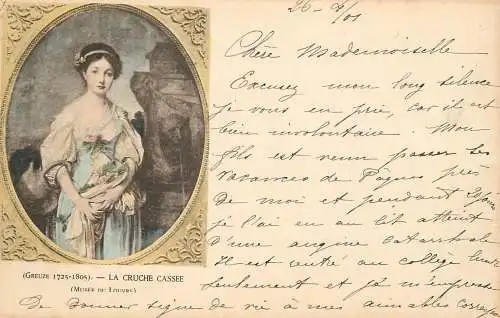 26-4/01
Chère Mademoiselle
Excusez mon long silence
je vous en prie, car il est
bien involontaire. Mon
fils est venu passer ses
vacances de Pâques près
de moi et pendant
je l'ai eu au lit atteint
d'une angine catarrhale
Il est rentré au collège
seulement et je m'empresse
de donner signe de vie à mes aimables
(GREUZE 1725-1805). — LA CRUCHE CASSÉE
(MUSÉE DU LOUVRE)